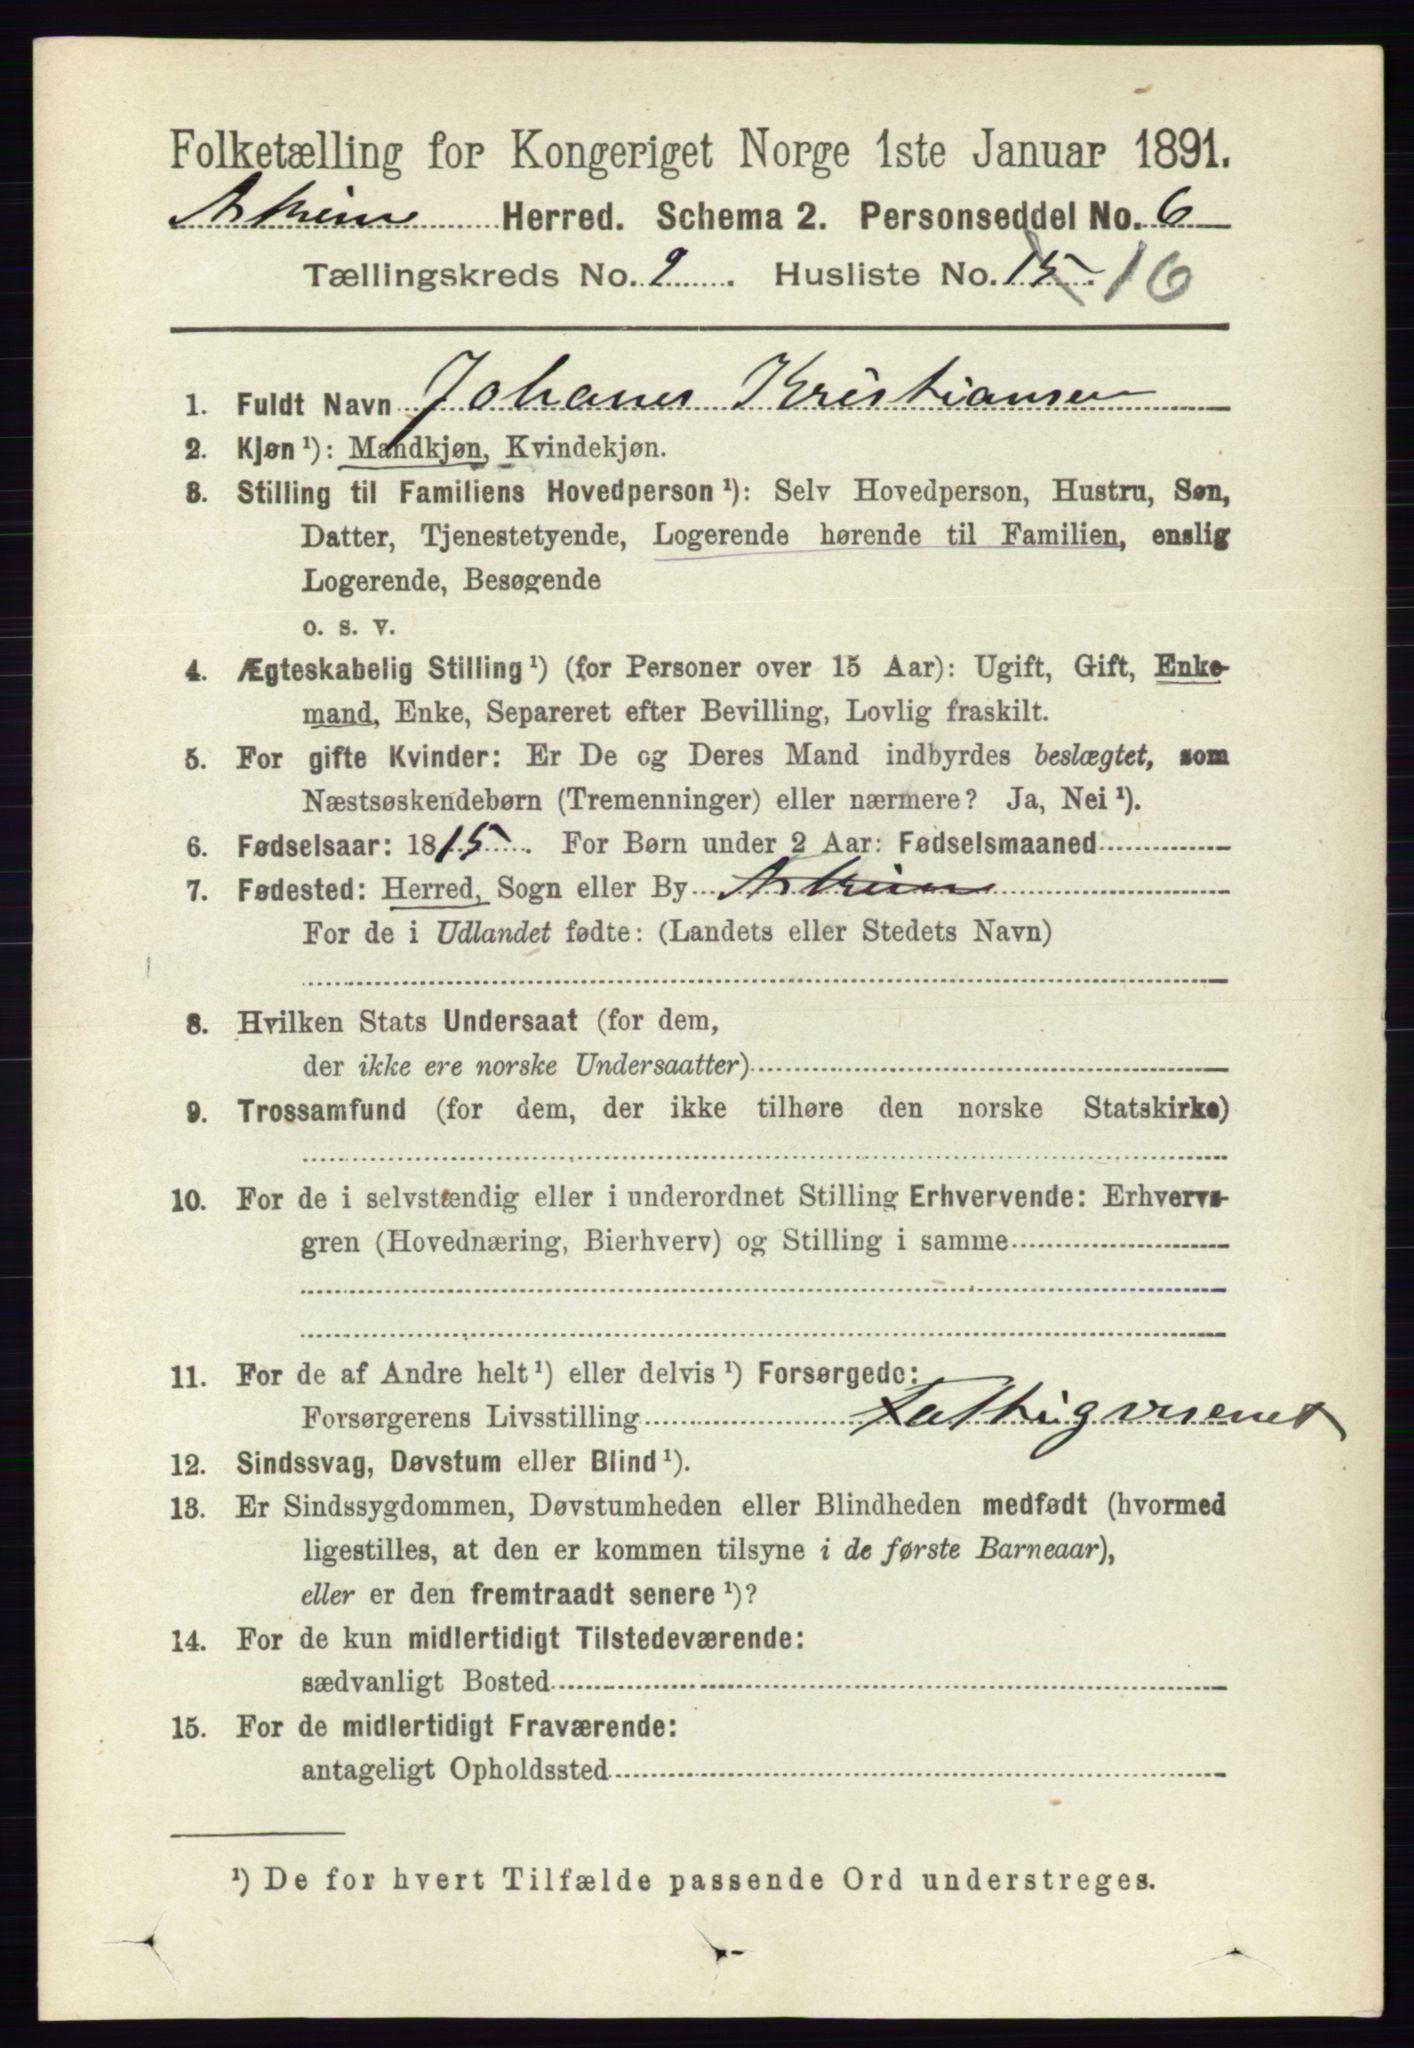 Folketælling for Kongeriget Norge 1ste Januar 1891.
Herred. Schema 2. Personseddel No. 6
Tællingskreds No. 9. Husliste No. 15. 16
1. Fuldt Navn Johanes Kristiansen
2. Kjøn ¹): Mandkjøn, Kvindekjøn.
3. Stilling til Familiens Hovedperson ¹): Selv Hovedperson, Hustru, Søn,
Datter, Tjenestetyende, Logerende hørende til Familien, enslig
Logerende, Besøgende
o. s. v.
4. Ægteskabelig Stilling ¹) (for Personer over 15 Aar): Ugift, Gift, Enke-
mand, Enke, Separeret efter Bevilling, Lovlig fraskilt.
5. For gifte Kvinder: Er De og Deres Mand indbyrdes beslægtet, som
Næstsøskendebørn (Tremenninger) eller nærmere? Ja, Nei ¹).
6. Fødselsaar: 1815. For Børn under 2 Aar: Fødselsmaaned
7. Fødested: Herred, Sogn eller By
For de i Udlandet fødte: (Landets eller Stedets Navn)
8. Hvilken Stats Undersaat (for dem,
der ikke ere norske Undersaatter)
9. Trossamfund (for dem, der ikke tilhøre den norske Statskirke)
10. For de i selvstændig eller i underordnet Stilling Erhvervende: Erhvervs-
gren (Hovednæring, Bierhverv) og Stilling i samme
11. For de af Andre helt ¹) eller delvis ¹) Forsørgede:
Forsørgerens Livsstilling Fattigvæsenet
12. Sindssvag, Døvstum eller Blind ¹).
13. Er Sindssygdommen, Døvstumheden eller Blindheden medfødt (hvormed
ligestilles, at den er kommen tilsyne i de første Barneaar),
eller er den fremtraadt senere ¹)?
14. For de kun midlertidigt Tilstedeværende:
sædvanligt Bosted
15. For de midlertidigt Fraværende:
antageligt Opholdssted
¹) De for hvert Tilfælde passende Ord understreges.